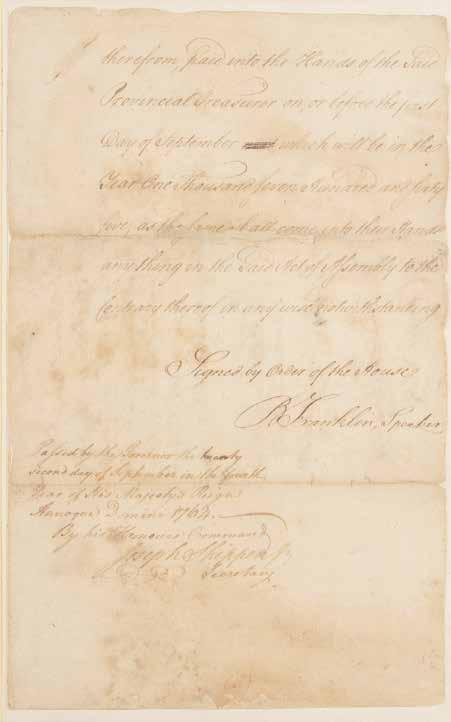 therefrom, paid into the Hands of the Said
Provincial Treasurer on, or before the first
Day of September which will be in the
Year One Thousand Seven Hundred and Sixty
five, as the same shall come into their Hands
any thing in the Said Act of Assembly to the
Contrary thereof in any wise notwithstanding
Signed by Order of the House
B Franklin, Speaker
Passed by the Governor the twenty
Second day of September in the fourth
Year of His Majesty's Reign
Annoque Domini 1764.
By his Honours Command
Joseph Shippen Jr
Secretary